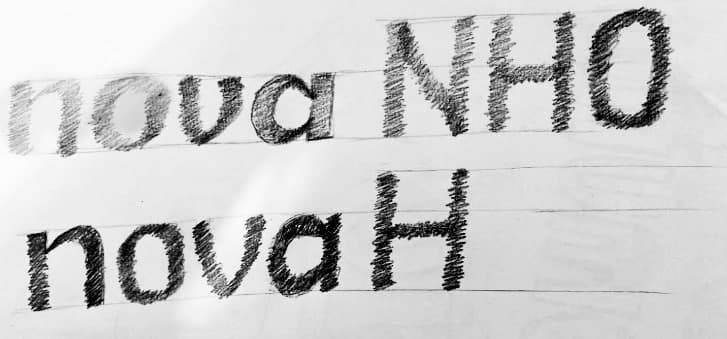 nova NHO
nova H